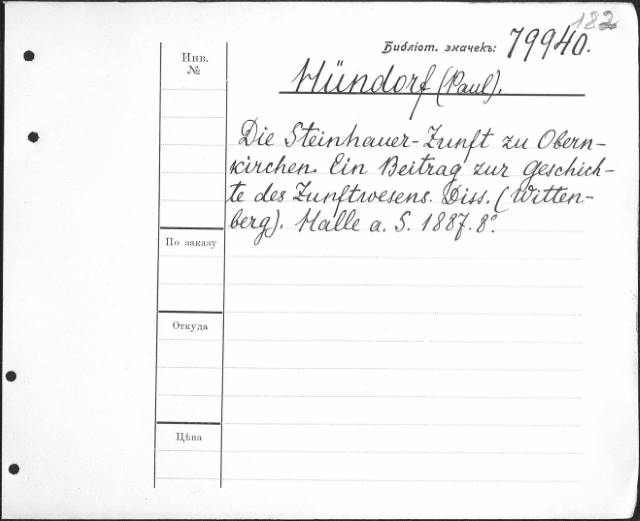 182
Библіот. значекъ: 79940.
Инв.
№
Hündorf (Paul).
Die Steinhauer-Zunft zu Obern-
kirchen. Ein Beitrag zur Geschich-
te des Zunftwesens. Diss. (Witten-
berg). Halle a. S. 1887. 8º.
По заказу
Откуда
Цѣна